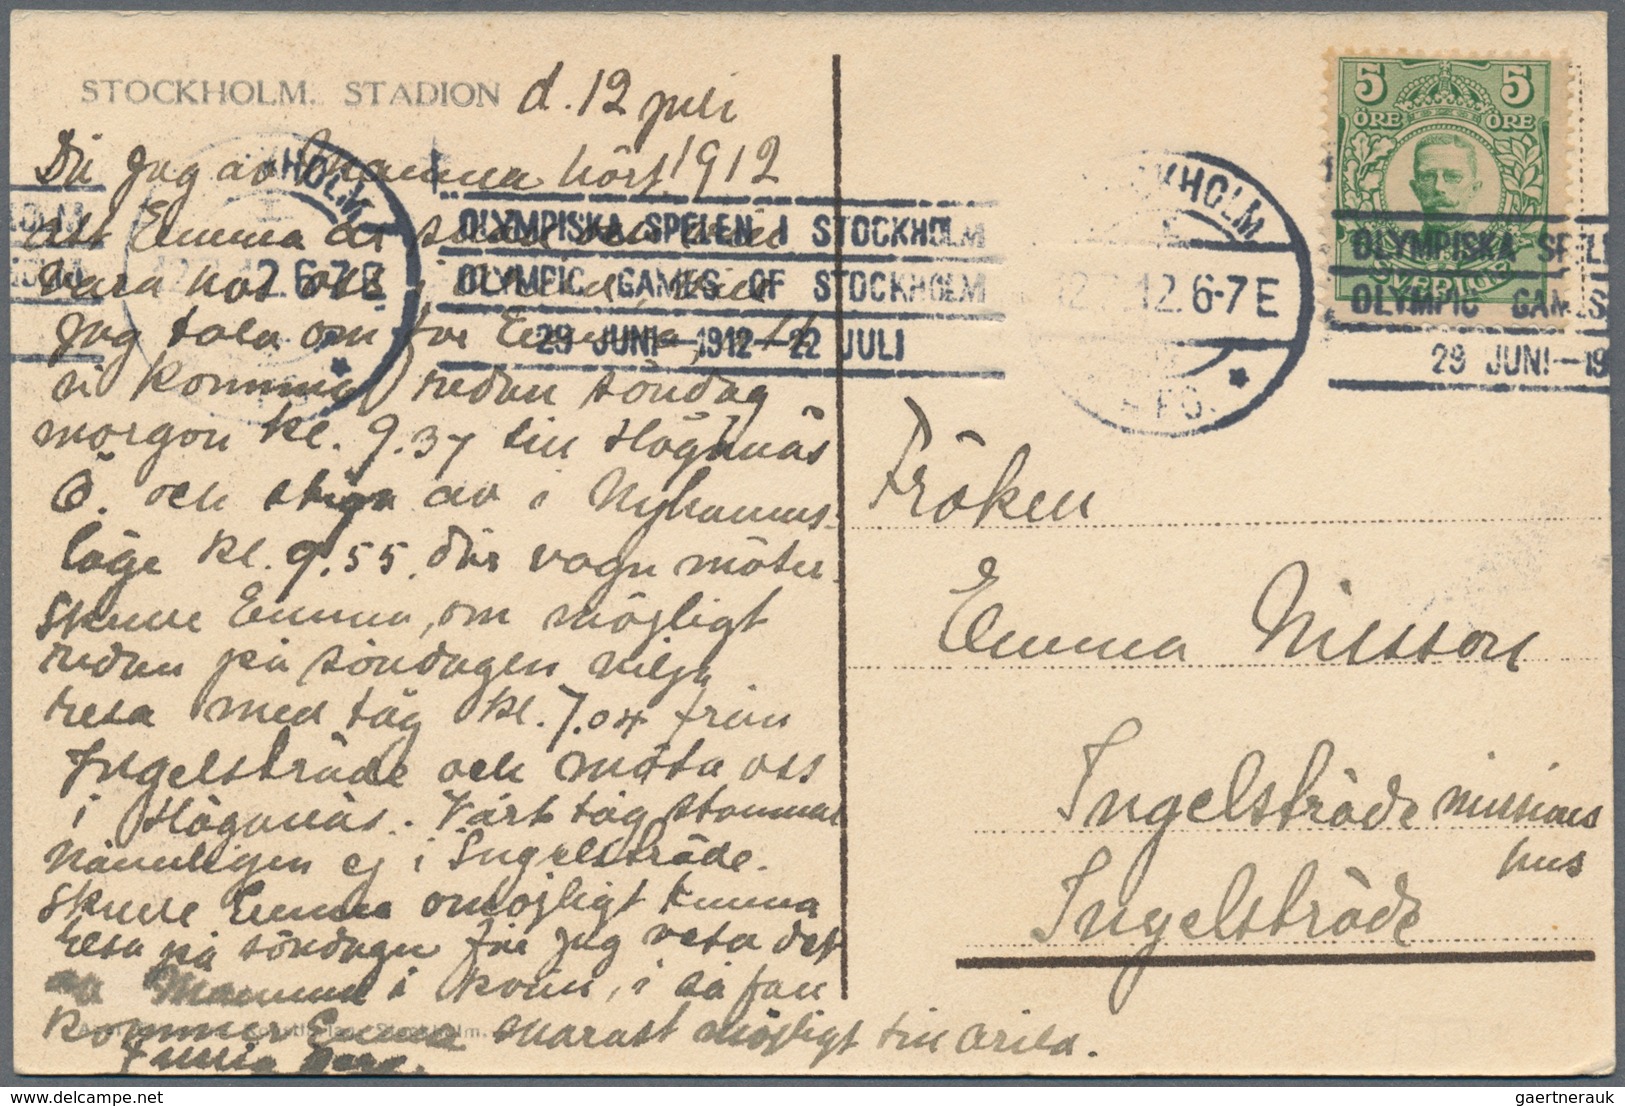 STOCKHOLM. STADION d. 12 juli
Då jag av Mamma hört 1912
att Emma är
vara hos oss i
jag tala om för Emma, att
vi komma redan söndag
morgon kl. 9.37 till Höganäs
Ö. och stiga av i Nyhamns-
läge kl. 9.55. där vagn möter.
Skulle Emma, om möjligt
redan på söndagen vilja
resa med tåg kl. 7.04 från
Ingelsträde och möta oss
i Höganäs. Vårt tåg stannar
nämligen ej i Ingelsträde.
Skulle Emma omöjligt kunna
resa på söndagen får jag veta det
av Mamma i kväll, i så fall
kommer Emma snarast möjligt till Arild.
STOCKHOLM
12.6-7E
OLYMPISKA SPELEN I STOCKHOLM
OLYMPIC GAMES OF STOCKHOLM
29 JUNI—1912—22 JULI
KHOLM
12.6-7E
OLYMPISKA SPEL
OLYMPIC GAMES
29 JUNI—19
5 5
ÖRE ÖRE
SVERIGE
Fröken
Emma Nilsson
Ingelsträde missions
hus
Ingelsträde
gaertnerauk